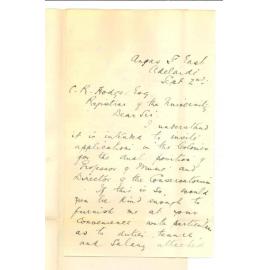 Angas St East
Adelaide
Sept 2nd
C. R. Hodge Esq
Registrar of the University
Dear Sir
I understand
it is intended to invite
applications in the Colonies
for the dual position of
Professor of Music and
Director of the Conservatorium
If this is so would
you be kind enough to
furnish me at your
convenience with particulars
as to duties, tenure
and Salary attached